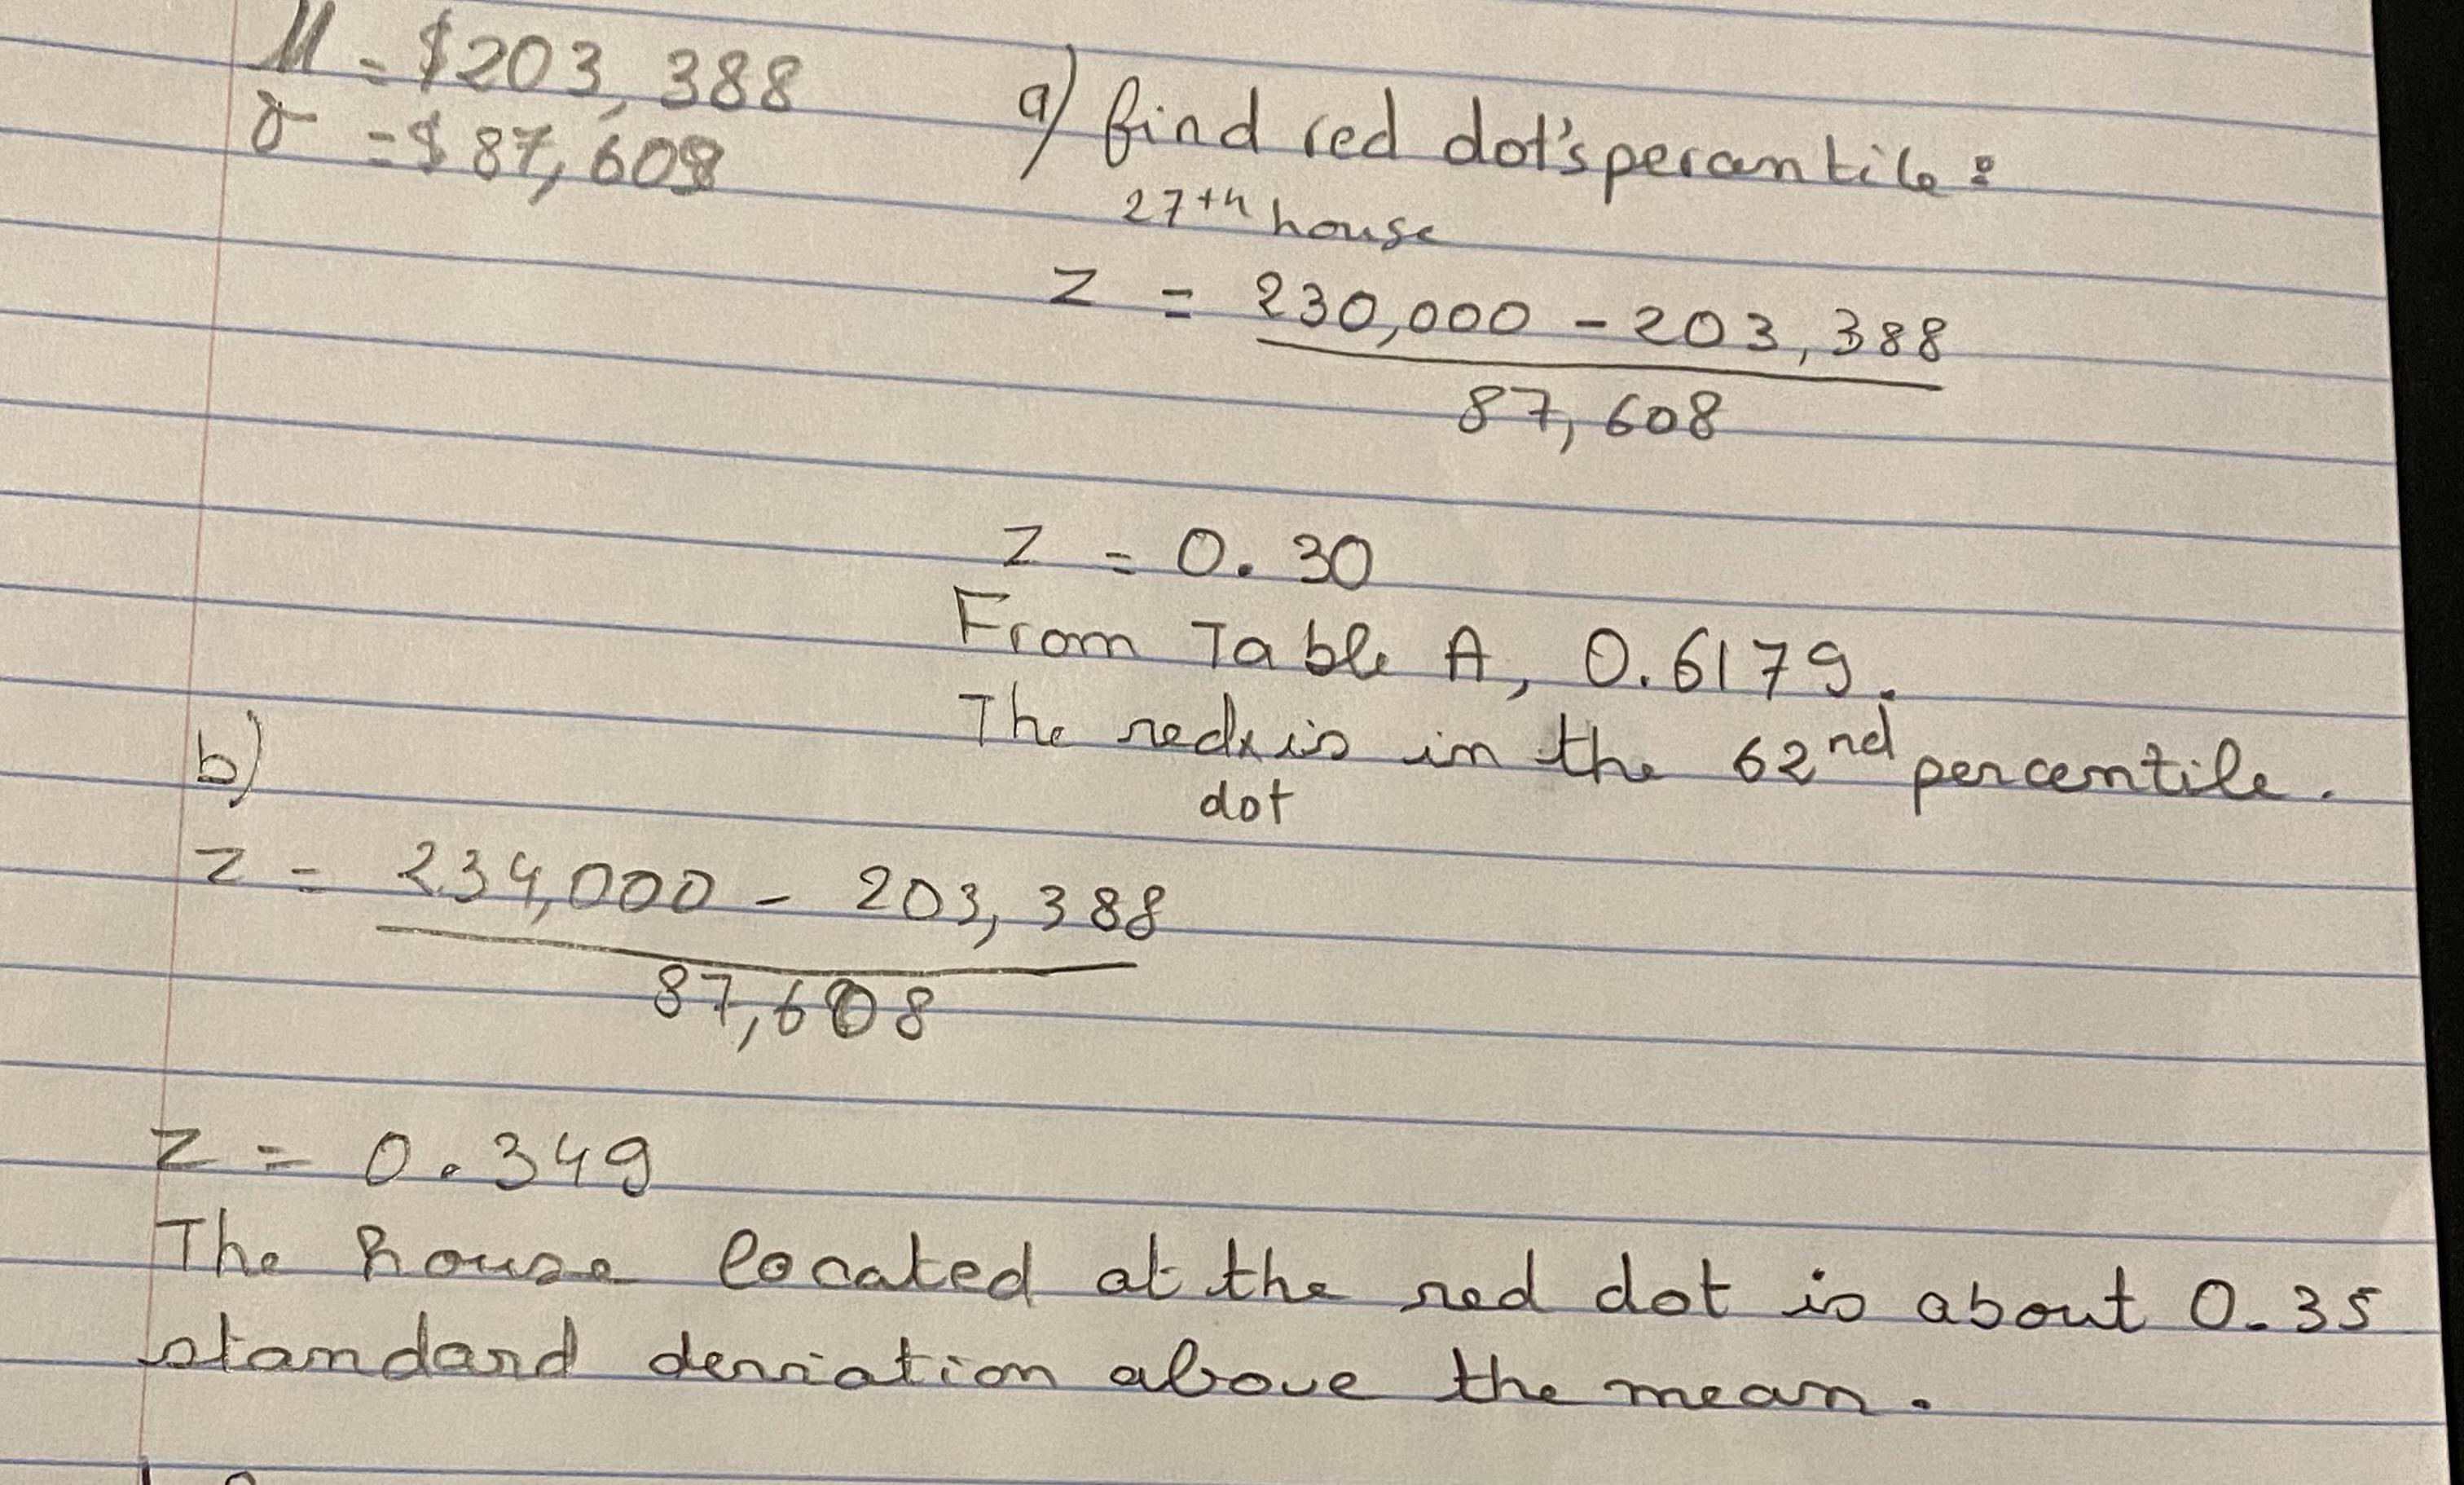 μ = $203,388
σ = $87,608
a) find red dot's percantile:
27th house
z = 230,000 - 203,388
87,608
z = 0.30
From Table A, 0.6179.
The red is in the 62nd percentile.
dot
b)
z = 234,000 - 203,388
87,608
z = 0.349
The house located at the red dot is about 0.35
standard deviation above the mean.